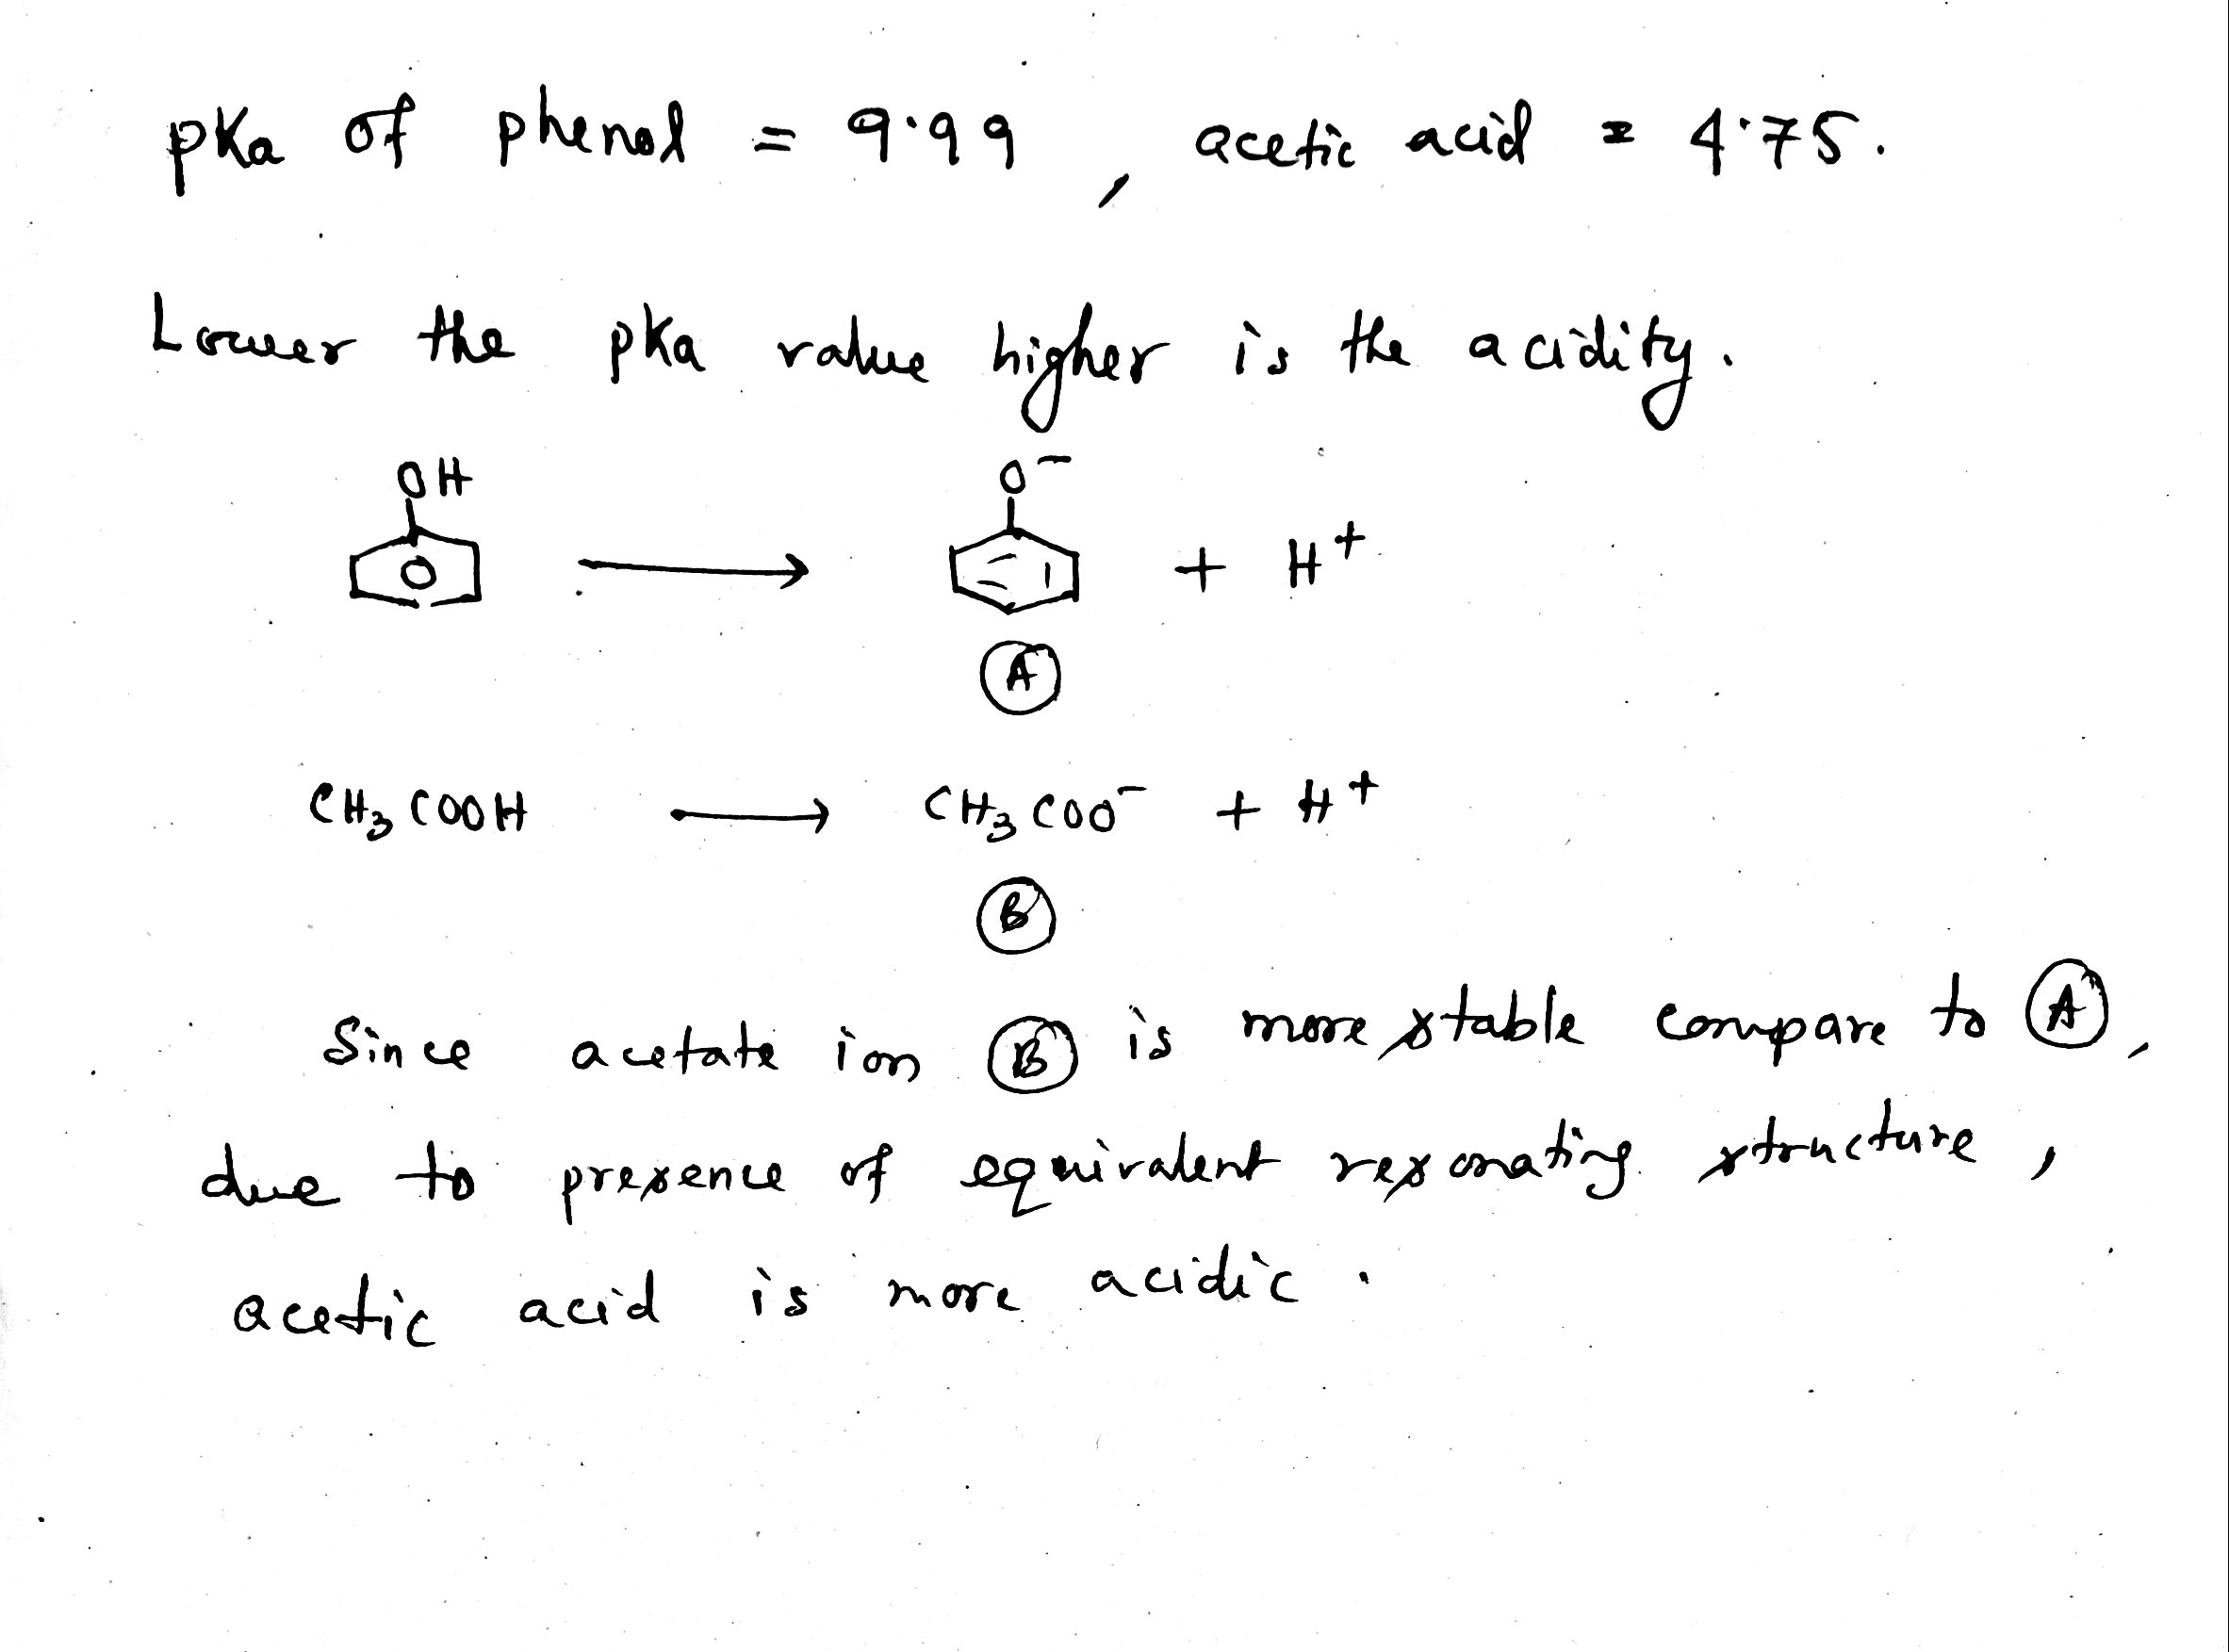 pKa of phenol = 9.99, acetic acid = 4.75.
Lower the pKa value higher is the acidity.
OH
O⁻
+ H⁺
A
CH₃COOH → CH₃COO⁻ + H⁺
B
Since acetate ion B is more stable compare to A,
due to presence of equivalent resonating structure,
acetic acid is more acidic.